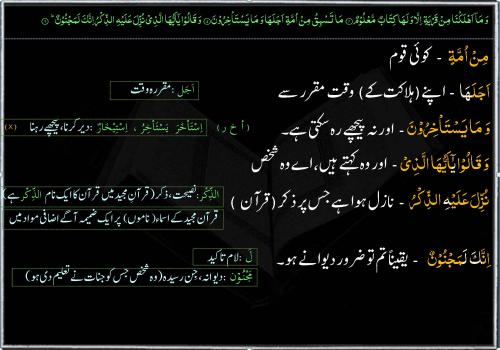 وَ مَاۤ اَهْلَكْنَا مِنْ قَرْیَةٍ اِلَّا وَ لَهَا كِتَابٌ مَّعْلُوْمٌ۝ مَا تَسْبِقُ مِنْ اُمَّةٍ اَجَلَهَا وَ مَا یَسْتَاْخِرُوْنَ۝ وَ قَالُوْا یٰۤاَیُّهَا الَّذِیْ نُزِّلَ عَلَیْهِ الذِّكْرُ اِنَّكَ لَمَجْنُوْنٌ۝
مِنْ اُمَّةٍ - کوئی قوم
اَجَلَهَا - اپنے (ہلاکت کے) وقت مقرر سے اَجَل : مقررہ وقت
وَ مَا یَسْتَاْخِرُوْنَ - اور نہ پیچھے رہ سکتی ہے۔ (أ خ ر) اِسْتَأْخَرَ یَسْتَأْخِرُ ، اِسْتِیْخَارٌ : دیر کرنا، پیچھے رہنا (X)
وَ قَالُوْا یٰۤاَیُّهَا الَّذِیْ - اور وہ کہتے ہیں، اے وہ شخص
نُزِّلَ عَلَیْهِ الذِّكْرُ - نازل ہوا ہے جس پر ذکر (قرآن) الذِّكْرُ: نصیحت، ذکر (قرآنِ مجید میں قرآن کا ایک نام الذِّكْرُ ہے)
قرآن مجید کے اسماء (ناموں) پر ایک ضمیمہ آگے اضافی مواد میں
اِنَّكَ لَمَجْنُوْنٌ - یقیناً تم تو ضرور دیوانے ہو۔ لَ : لام تاکید
مَجْنُوْن : دیوانہ، جِن رسیدہ (وہ شخص جس کو جنات نے تعلیم دی ہو)